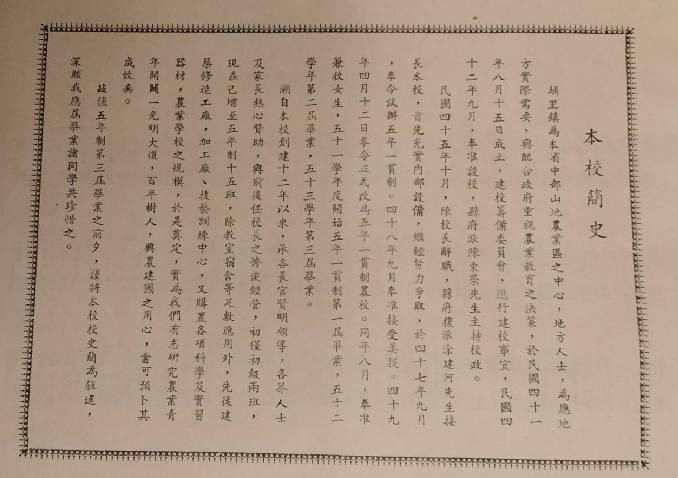 本校簡史
埔里鎮為本省中部山地農業區之中心，地方人士，為應地
方實際需要，與配合政府重視農業教育之決策，於民國四十一
年八月十五日成立，建校籌備委員會，進行建校事宜，民國四
十二年九月，奉准設校，縣府派陳東榮先生主持校政。
民國四十五年十月，陳校長辭職，縣府復派涂建河先生接
長本校，首先充實內部設備，繼經努力爭取，於四十七年九月
，奉令試辦五年一貫制。四十八年九月奉准接受美援。四十九
年四月十二日奉令正式改為五年一貫制農校。同年八月，奉准
兼收女生，五十一學年度開始五年一貫制第一屆畢業，五十二
學年第二屆畢業，五十三學年第三屆畢業。
溯自本校創建十二年以來，承各長官賢明領導，各界人士
及家長熱心贊助，與前後任校長之慘淡經營，初僅初級兩班，
現在己增至五年制十五班，除教室宿舍等足敷應用外，先後建
築修造工廠，加工廠、技藝訓練中心，又購置各項科學及實習
器材，農業學校之規模，於是奠定，實為我們有志研究農業青
年開闢一光明大道，百年樹人，興農建國之用心，當可預卜其
成效矣。
茲值五年制第三屆畢業之前夕，謹將本校校史簡為敍述，
深願我應屆畢業諸同學共珍惜之。